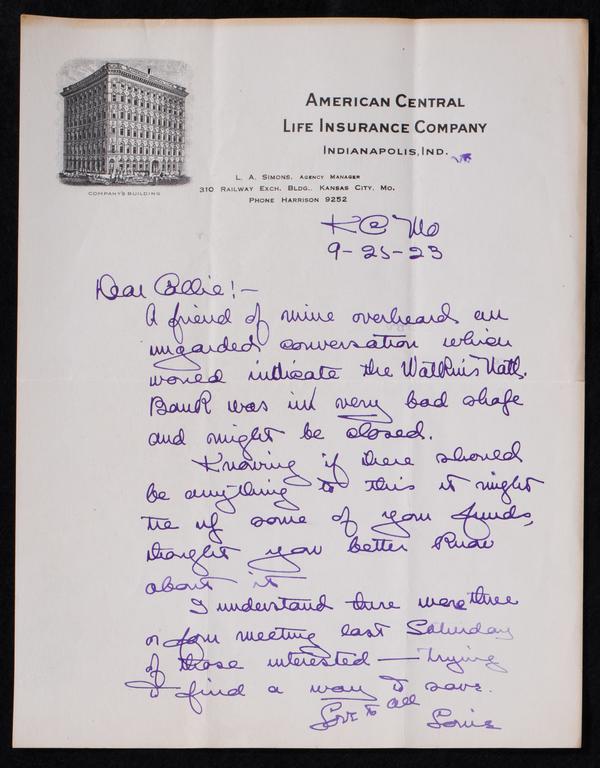 COMPANY'S BUILDING
AMERICAN CENTRAL
LIFE INSURANCE COMPANY
INDIANAPOLIS, IND.
L. A. SIMONS, AGENCY MANAGER
310 RAILWAY EXCH. BLDG., KANSAS CITY, MO.
PHONE HARRISON 9252
K C Mo
9-25-23
Dear Collie!-
A friend of mine overheard an
ungarded conversation which
would indicate the Watkins Natl.
Bank was in very bad shape
and might be closed.
Knowing if there should
be anything to this it might
tie up some of your funds,
thought you better know
about it
I understand there were three
or four meeting last Saturday
of those interested — Trying
to find a way to save.
Love to all
Louie